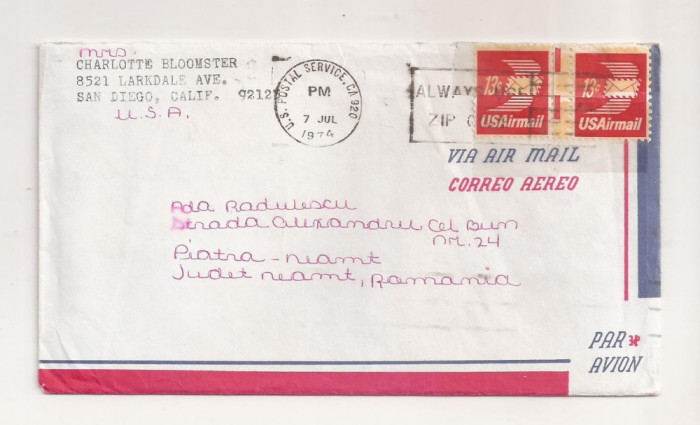 mrs
CHARLOTTE BLOOMSTER
8521 LARKDALE AVE.
SAN DIEGO, CALIF. 9212
U.S.A.
U.S. POSTAL SERVICE, CA 920
PM
7 JUL
1974
ALWAYS USE
ZIP
13c
USAirmail
13c
USAirmail
VIA AIR MAIL
CORREO AEREO
Ada Radulescu
Strada Alexandru Cel Bun
nr. 24
Piatra-neamt
Judet neamt, Romania
PAR
AVION